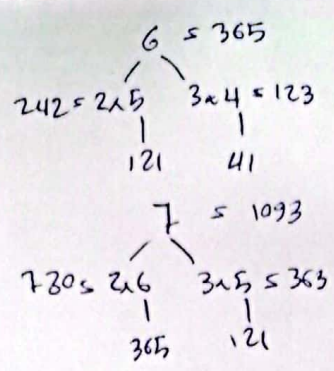 6 = 365
242 = 2x5 3x4 = 123
121 41
7 = 1093
730 = 2x6 3x5 = 363
365 121